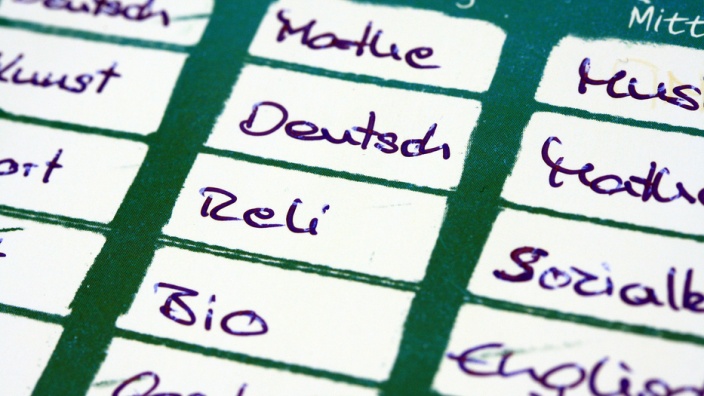 Deutsch
Kunst
Mathe
Deutsch
Reli
Bio
Mitt
Mus
Mathe
Sozialk
Englisc